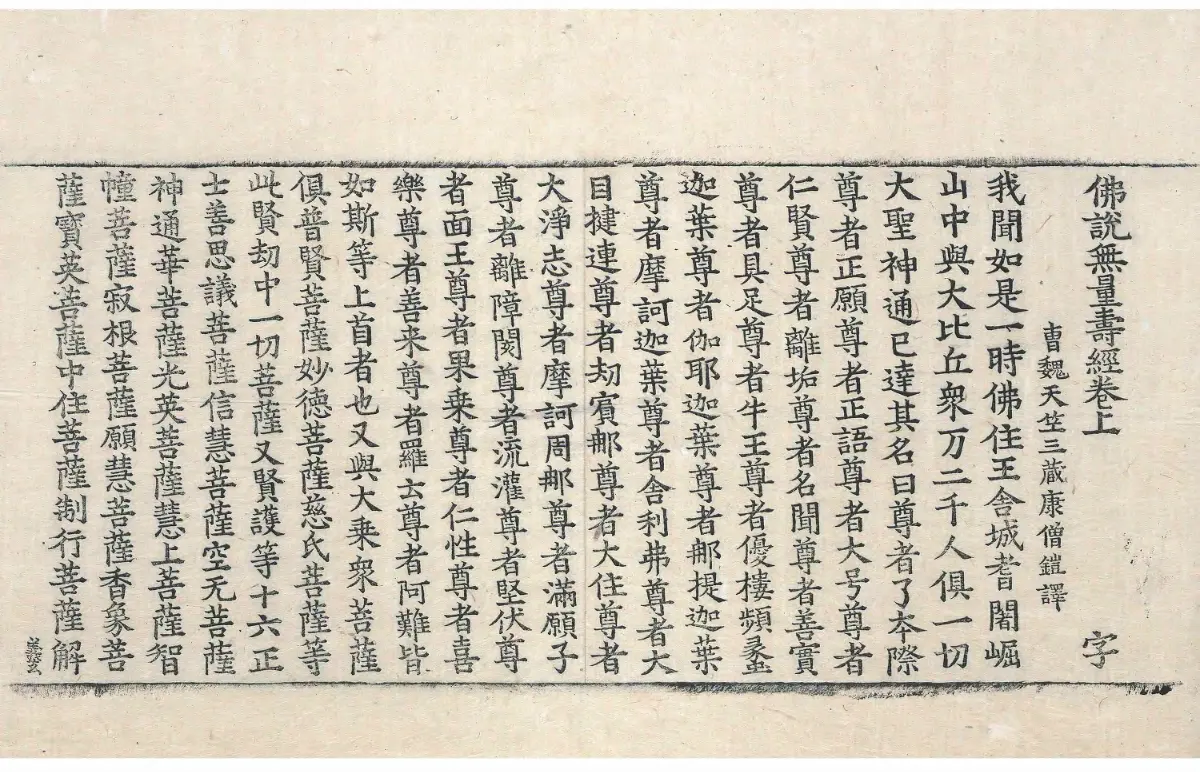 佛說無量壽經卷上 字
曹魏天竺三藏康僧鎧譯
我聞如是一時佛住王舍城耆闍崛
山中與大比丘衆万二千人俱一切
大聖神通已達其名曰尊者了夲際
尊者正願尊者正語尊者大号尊者
仁賢尊者離垢尊者名聞尊者善實
尊者具足尊者牛王尊者優樓頻蠡
迦葉尊者伽耶迦葉尊者那提迦葉
尊者摩訶迦葉尊者舍利弗尊者大
目揵連尊者劫賓那尊者大住尊者
大淨志尊者摩訶周那尊者滿願子
尊者離障閡尊者流灌尊者堅伏尊
者面王尊者果乗尊者仁性尊者喜
樂尊者善来尊者羅云尊者阿難皆
如斯等上首者也又與大乗衆菩薩
俱普賢菩薩妙德菩薩慈氏菩薩等
此賢劫中一切菩薩又賢護等十六正
士善思議菩薩信慧菩薩空无菩薩
神通華菩薩光英菩薩慧上菩薩智
幢菩薩寂根菩薩願慧菩薩香象菩
薩寶英菩薩中住菩薩制行菩薩解